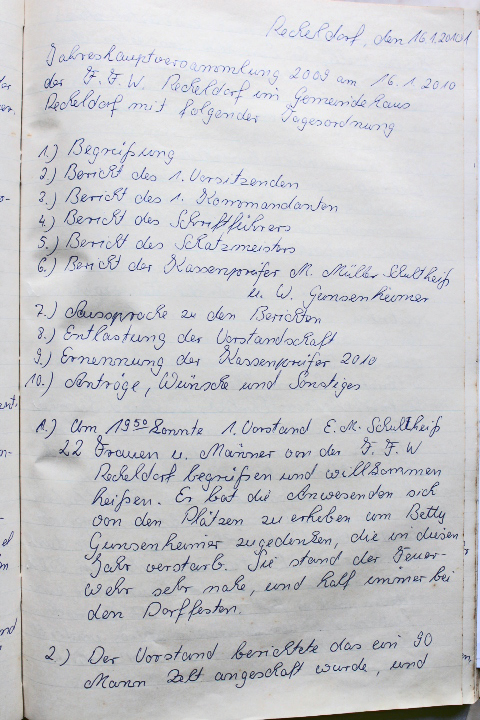 Reckeldorf, den 16.1.2010
Jahreshauptversammlung 2009 am 16.1.2010
der F.F.W. Reckeldorf im Gemeindehaus
Reckeldorf mit folgender Tagesordnung
1.) Begrüßung
2.) Bericht des 1. Vorsitzenden
3.) Bericht des 1. Kommandanten
4.) Bericht des Schriftführers
5.) Bericht des Schatzmeisters
6.) Bericht der Kassenprüfer M. Müller-Schultheiß
u. W. Gunsenheimer
7.) Aussprache zu den Berichten
8.) Entlastung der Vorstandschaft
9.) Ernennung der Kassenprüfer 2010
10.) Anträge, Wünsche und Sonstiges
1.) Um 19 50 konnte 1. Vorstand E. M. Schultheiß
22 Frauen u. Männer von der F. F. W
Reckeldorf begrüßen und willkommen
heißen. Er bat die Anwesenden sich
von den Plätzen zu erheben um Betty
Gunsenheimer zugedenken, die in diesen
Jahr verstarb. Sie stand der Feuer-
wehr sehr nahe, und half immer bei
den Dorffesten.
2.) Der Vorstand berichtete das ein 90
Mann Zelt angeschaft wurde, und